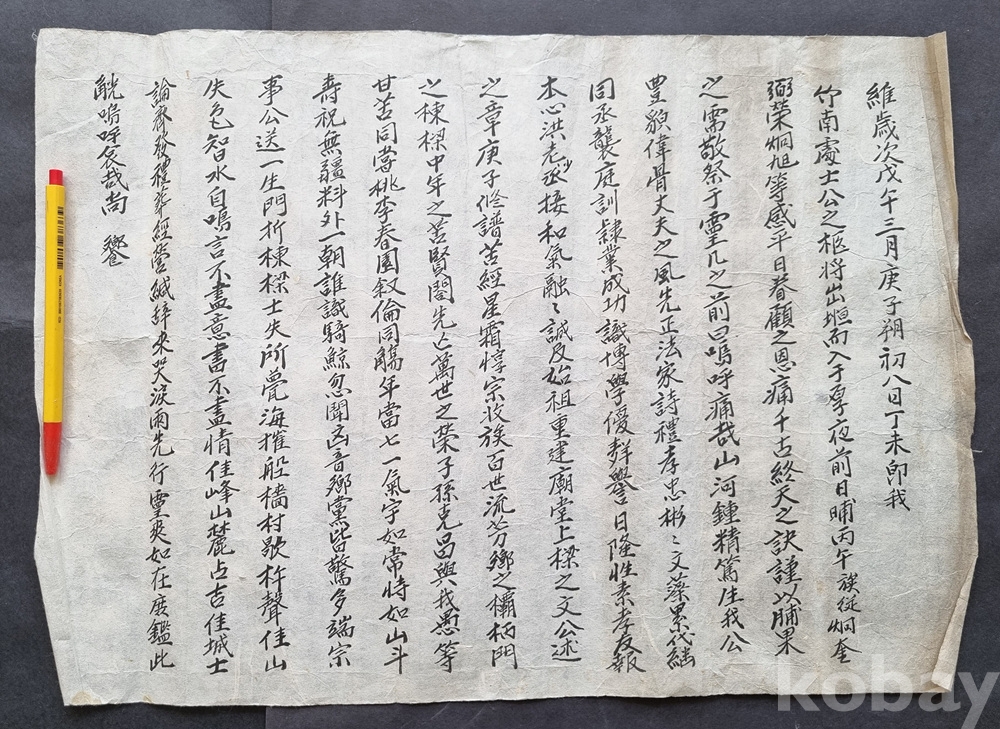 維歲次戊午三月庚子朔初八日丁未卽我
竹南處士公之柩將出垣而入于穸夜前日晡丙午族從炯奎
弼榮炯旭等感平日眷顧之恩痛千古終天之訣謹以脯果
之需敬祭于靈几之前曰嗚呼痛哉山河鍾精篤生我公
豊貌偉骨丈夫之風先正法家詩禮孝忠彬〻文藻累代繼
同承襲庭訓隷業成功識博學優群譽日隆性素孝友報
本心洪老少承接和氣融〻誠及始祖重建廟堂上樑之文公述
之章庚子修譜苦經星霜惇宗收族百世流芳鄕之欛柄門
之棟樑中年之苦賢閤先亡萬世之榮子孫克昌與我愚等
甘苦同嘗桃李春園叙倫同觴年當七一氣宇如常恃如山斗
壽祝無疆料外一朝誰識騎鯨忽聞凶音鄕黨皆驚多端宗
事公送一生門折棟樑士失所瞻海摧船檣村歇杵聲佳山
失色智水自鳴言不盡意書不盡情佳峰山麓占吉佳城士
論齊發禮葬經營緘辭來哭淚雨先行靈爽如在庶鑑此
觥嗚呼哀哉尚 饗
kobay